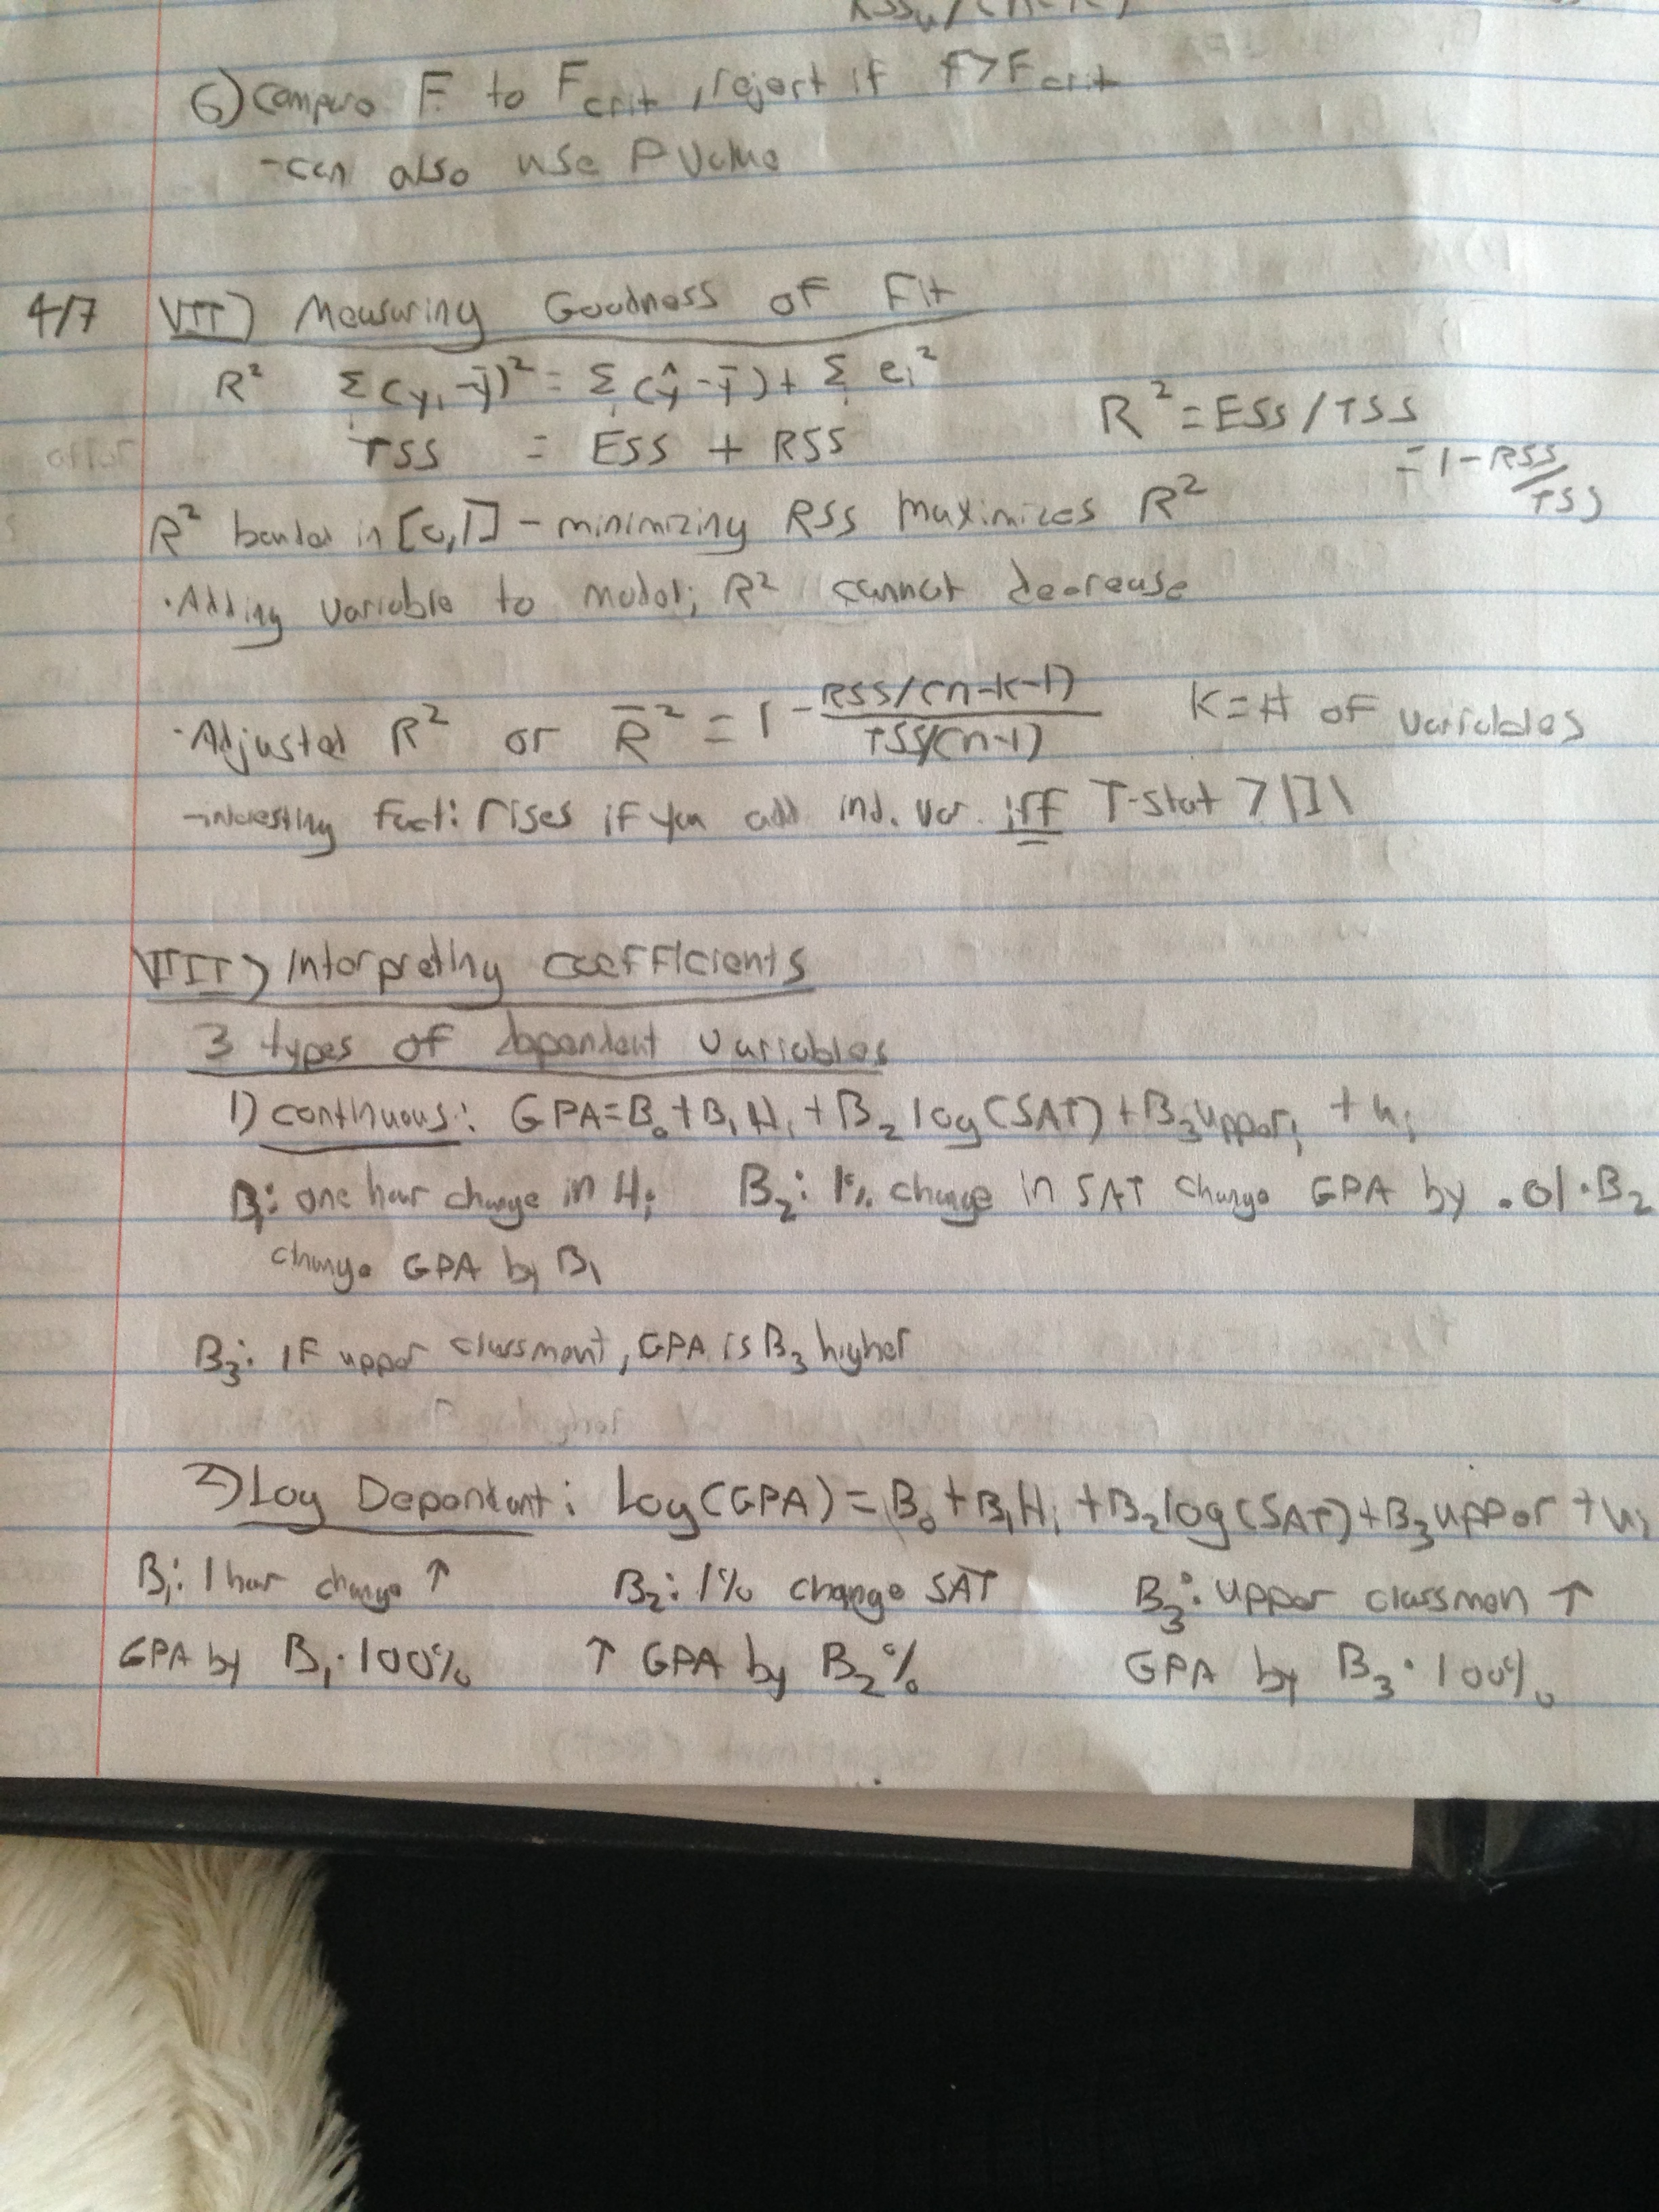 6) compare F to F crit, reject if F>F crit
- can also use P value
4/7 VII) Measuring Goodness of Fit
R² Σ(yᵢ-ȳ)² = Σ(ŷ-ȳ) + Σ eᵢ²
TSS = ESS + RSS
R² = ESS/TSS
= 1 - RSS/TSS
R² bounded in [0,1] - minimizing RSS maximizes R²
· Adding variable to model; R² cannot decrease
· Adjusted R² or R̄² = 1 - RSS/(n-k-1) / TSS/(n-1) K = # of variables
- interesting fact: rises if you add ind. var. iff T-stat > |1|
VIII) Interpreting coefficients
3 types of dependent variables
1) continuous: GPA = B₀ + B₁Hᵢ + B₂ log(SAT) + B₃upperᵢ + uᵢ
B₁: one hour change in Hᵢ B₂: 1% change in SAT change GPA by .01·B₂
change GPA by B₁
B₃: IF upper classment, GPA is B₃ higher
2) Log Dependent: Log(GPA) = B₀ + B₁Hᵢ + B₂log(SAT) + B₃upper + uᵢ
B₁: 1 hour change ↑ B₂: 1% change SAT B₃: upper classmen ↑
GPA by B₁·100% ↑ GPA by B₂% GPA by B₃·100%